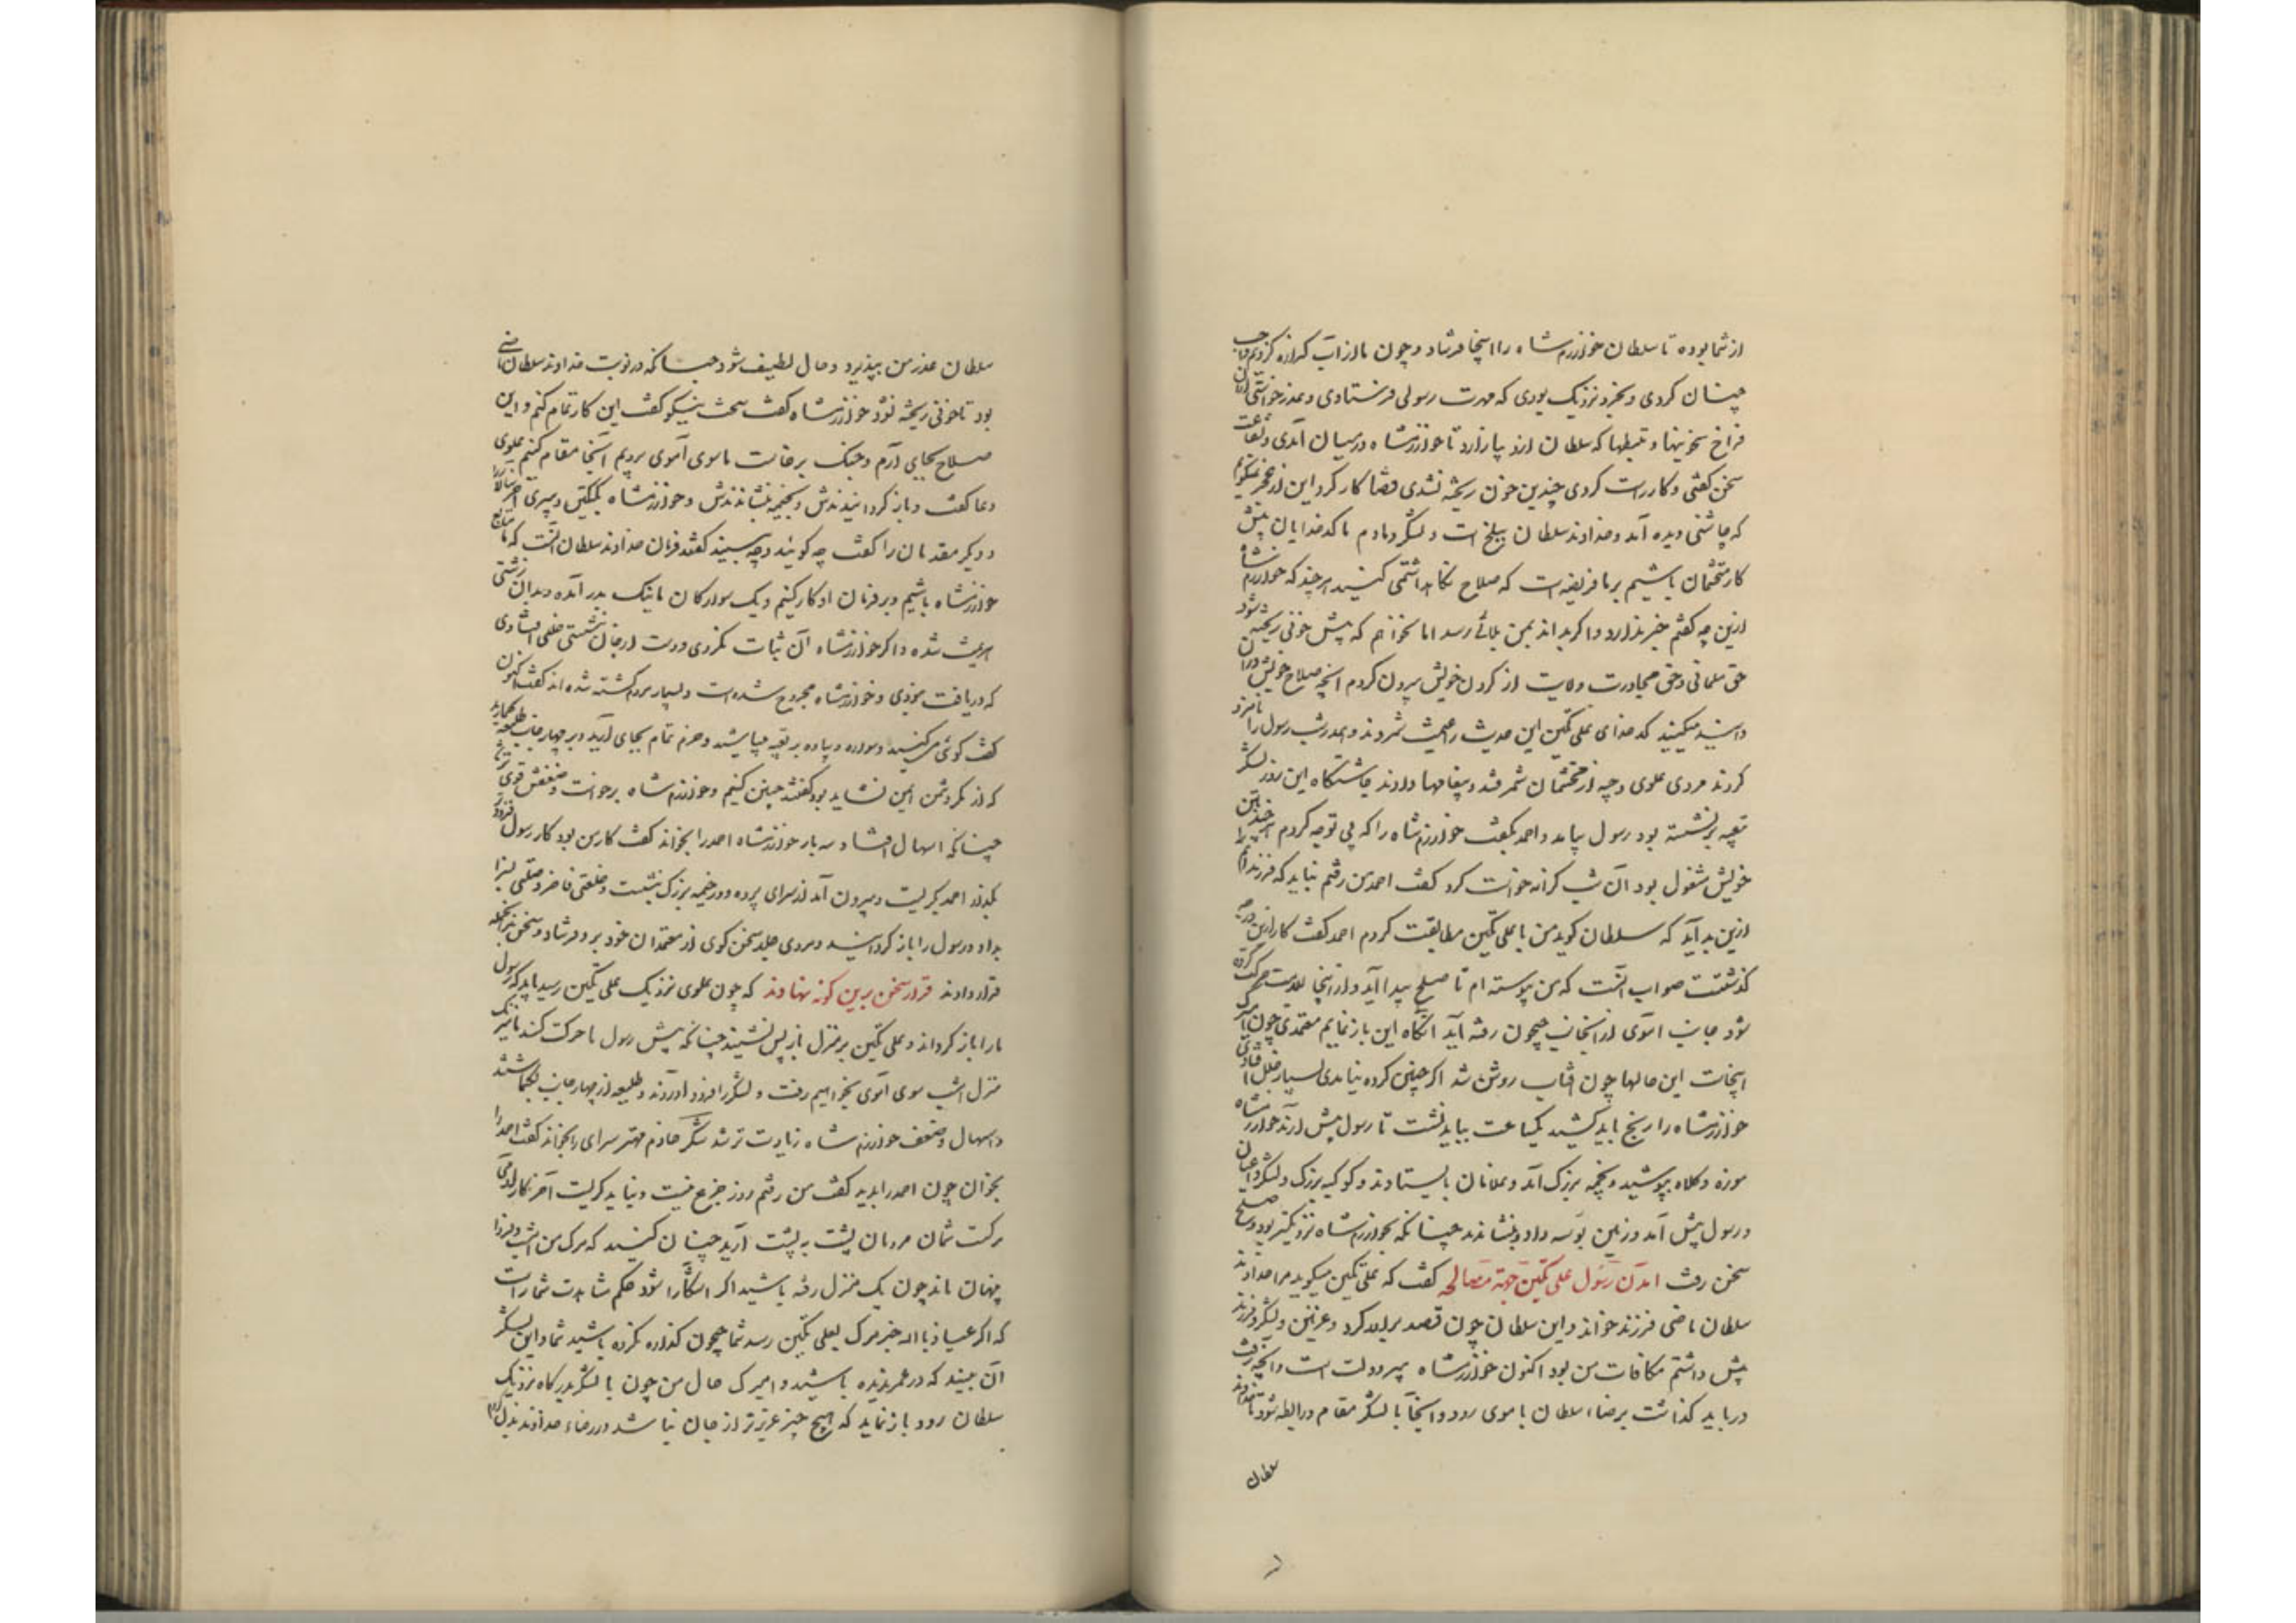 از شما بوده تا سلطان خوارزمشاه را اینجا فرستاد و چون ما از آب گذاره کردیم واجب
چنان کردی و بخرد نزدیک بودی که مهرت رسولی فرستادی و عذر خواستی ازان
فراخ سخنیها و تبسطها که سلطان ازو بیازارد تا خوارزمشاه در میان آمدی و شفاعت
سخن گفتی و کار راست کردی چندین خون ریخته نشدی قضا کار کرد این از عجز نمیگویم
که چاشنی دیده آمد و خداوند سلطان ببلخ است و لشکر دمادم ما کدخدایان پیش
کار محتشمان باشیم بر ما فریضه است که صلاح نگاه داشتمی کنید هر چند که خوارزمشاه
ازین چه گفتم خبر ندارد و اگر بداند بمن بلائی رسد اما نخواهم که بیش خونی ریخته شود
حق مسلمانی و حق مجاورت ولایت از گردن خویش بیرون کردم آنچه صلاح خویش دران
دانید میکنید کدخدای علی تکین این حدیث را غنیمت شمردند و بعد رسول را نامزد
کردند مردی علوی وجیه از محتشمان سمرقند و پیغامها دادند چاشتگاه این روز لشکر
تعبیه برنشسته بود رسول بیامد و احمد بگفت خوارزمشاه را که بی تو چه کردم هر چند بتن
خویش مشغول بود آن شب کرانه خواست کرد گفت احمد من رفتم نباید که فرزندانم را
ازین بد آید که سلطان گوید من با علی تکین مطابقت کردم احمد گفت کار ازین درجه
گذشتست صواب آنست که من پیوسته‌ام تا صلح پیدا آید و از اینجا بسلامت حرکت کرده
شود جانب آموی از آنجانب جیحون رفته آید آنگاه این باز نمایم معتمدی چون امیرک
اینجاست این حالها چون آفتاب روشن شد اگر چنین کرده نیامدی بسیار خلل افتادی
خوارزمشاه را رنج باید کشید یکساعت بباید نشست تا رسول پیش آرند خوارزمشاه
موزه و کلاه بپوشید و بخیمه بزرگ آمد و غلامان بایستادند و کوکبه بزرگ و لشکر و اعیان
و رسول پیش آمد و زمین بوسه داد و بنشاندند چنانکه بخوارزمشاه نزدیکتر بود و صلح
سخن رفت آمدن رسول علی تکین جهة مصالحه گفت که علی تکین میگوید مرا خداوند
سلطان ماضی فرزند خواند و این سلطان چون قصد برادر کرد و غزنین و لشکر و فرزند
پیش داشتم مکافات من بود اکنون خوارزمشاه پیر دولت است و آنچه رفت
درباید گذاشت برضاء سلطان باموی رود و آنجا با لشکر مقام و رابطه شود تا خداوند
سلطان
سلطان عذر من بپذیرد و حال لطیف شود چنانکه در نوبت خداوند سلطان ماضی
بود تا خونی ریخته نشود خوارزمشاه گفت سخت نیکو گفت این کار تمام کنم و این
صلاح بجای آرم و جنگ برخاست ما سوی آموی برویم آنجا مقام کنیم علوی
دعا گفت و باز گردانیدندش و بخیمه بنشاندندش و خوارزمشاه بکتکین و پیری آخرسالار را
و دیگر مقدمان را گفت چه گوئید و چه بینید گفتند فرمان خداوند سلطان آنست که ما متابع
خوارزمشاه باشیم و بر فرمان او کار کنیم و یک سوارکان ما نیک بدر آمده و بدان زشتی
هزیمت شده و اگر خوارزمشاه آن ثبات نکردی و دست از جان نشستی خللی افتادی
که دریافت نبودی و خوارزمشاه مجروح شده است و بسیار مردم کشته شده‌اند گفت اکنون
گفت گوی مکنید و سواره و پیاده بر تعبیه میباشید و حزم تمام بجای آرید و بر چهار جانب طلیعه گمارید
که از مکر دشمن ایمن نشاید بود گفتند چنین کنیم و خوارزمشاه برخاست و ضعفش قوی‌تر شد
چنانکه اسهال افتاد سه بار خوارزمشاه احمد را بخواند گفت کار من بود کار رسول زودتر
بگذار احمد بگریست و بیرون آمد از سرای پرده و در خیمه بزرگ بنشست و خلعتی فاخر و صلتی بسزا
بداد و رسول را باز گردانید و مردی جلد سخن گوی از معتمدان خود برو فرستاد و سخن بر آنجمله
قرار دادند قرار سخن برین گونه نهادند که چون علوی نزدیک علی تکین رسید باید که رسول
ما را باز گرداند و علی تکین بر منزل باز پس نشیند چنانکه پیش رسول ما حرکت کند ما نیز یک
منزل امشب سوی آموی بخواهیم رفت و لشکر را فرود آوردند و طلیعه از چهار جانب بگماشتند
و اسهال و ضعف خوارزمشاه زیادت تر شد شکر خادم مهتر سرای را بخواند گفت احمد را
بخوان چون احمد را بدید گفت من رفتم روز جزع نیست و نباید گریست آخر کار آدمی
مرگست شمایان مردمان پشت به پشت آرید چنان کنید که مرگ من امشب و فردا
پنهان ماند چون یک منزل رفته باشید اگر آشکارا شود حکم مشاهدت شماراست
که اگر عیاذ بالله خبر مرگ بعلی تکین رسد شما جیحون گذاره نکرده باشید شما و این لشکر
آن بینید که در عمر ندیده باشید و امیرک حال من چون با لشکر بدرگاه نزدیک
سلطان رود باز نماید که هیچ چیز عزیزتر از جان نباشد در رضاء خداوند بذل کردم